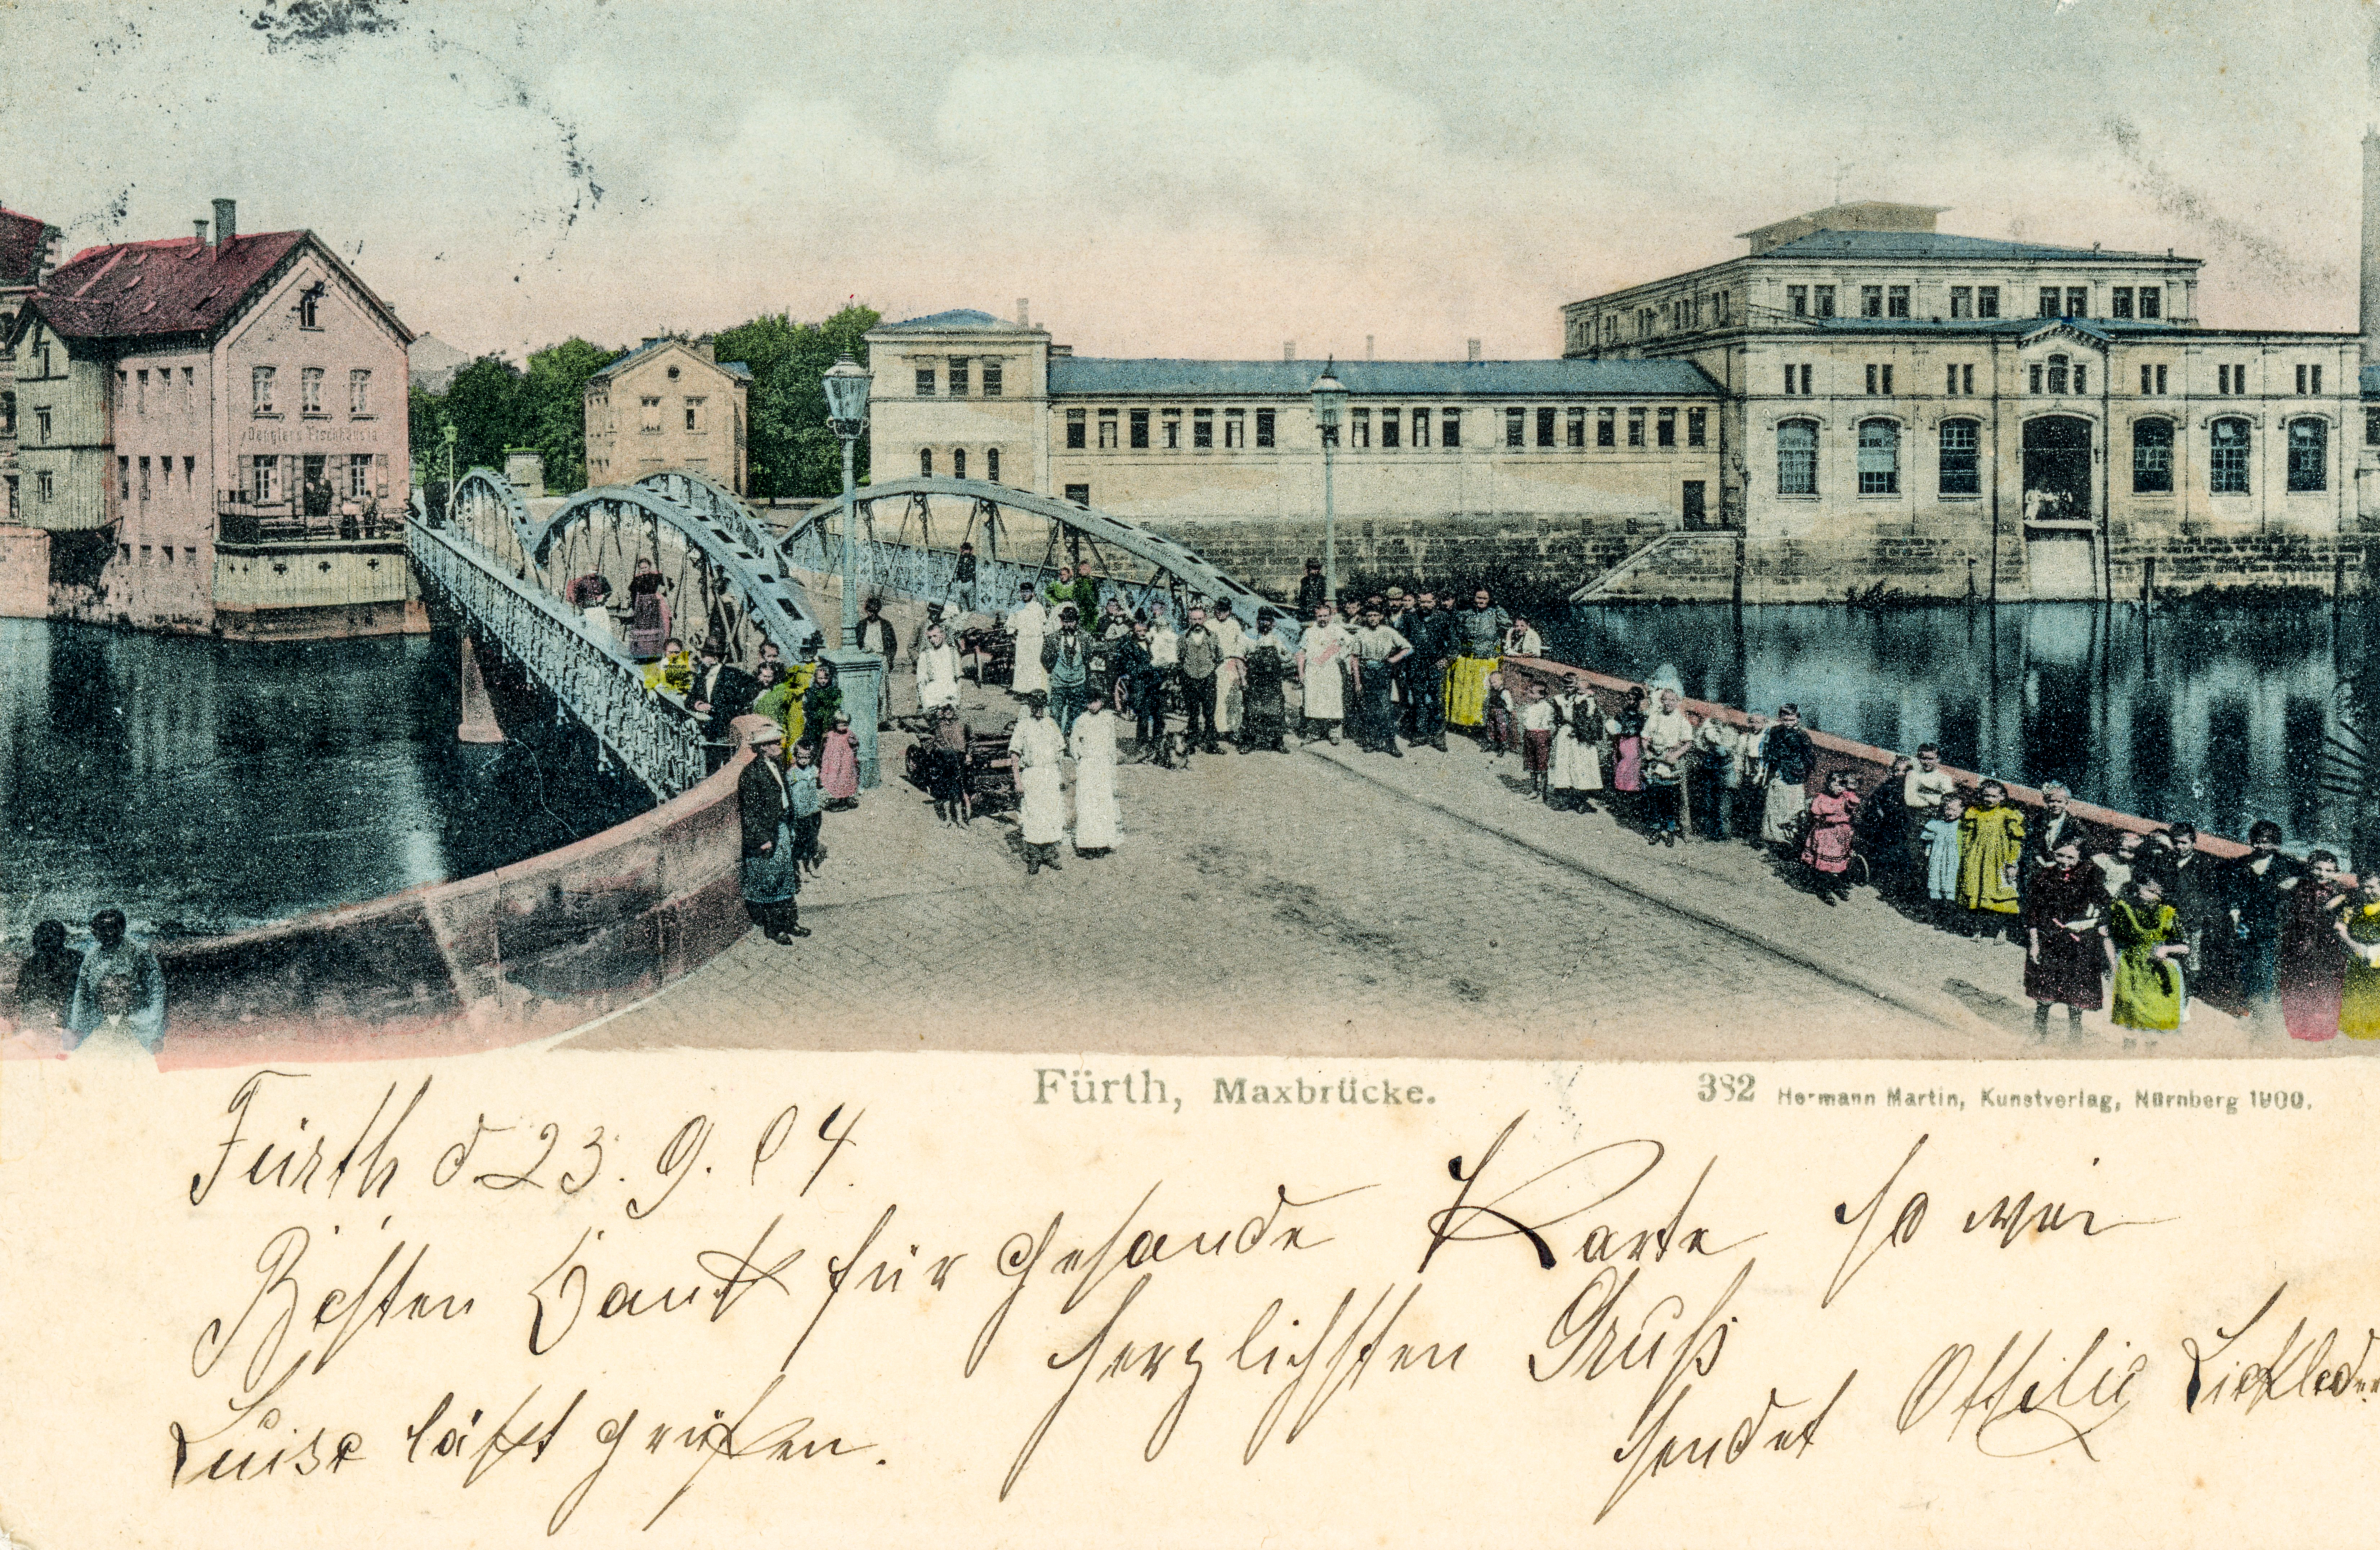 Dengler's Fischhäusla
Fürth, Maxbrücke.
382 Hermann Martin, Kunstverlag, Nürnberg 1900.
Fürth d. 23. 9. 04.
Besten Dank für gesande Karte so wie
herzlichsten Gruß
sendet Ottilie
Luise läßt grüßen.